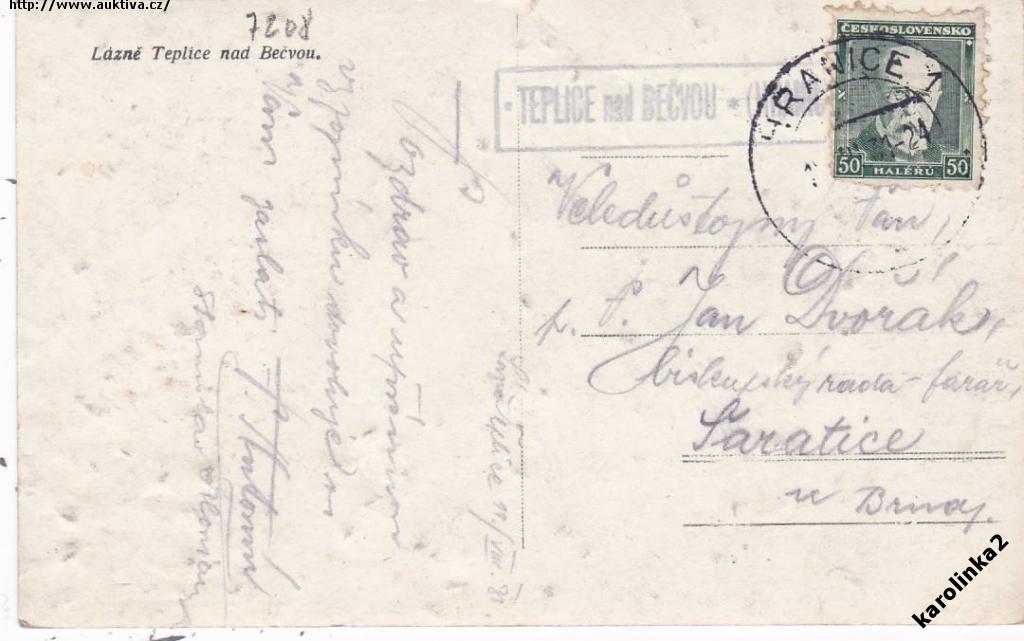 http://www.auktiva.cz/
7208
Lázně Teplice nad Bečvou.
TEPLICE nad BEČVOU *
HRANICE 1
ČESKOSLOVENSKO
50 HALÉŘŮ 50
Veledůstojný Pan,
p. P. Jan Dvořák,
biskupský rada - farář,
Šaratice
u Brna.
Pozdrav a upřímnou
vzpomínku dovoluje si
Vám zaslati
P. Antonín
Stanislav
11/VIII. 31.
karolinka2